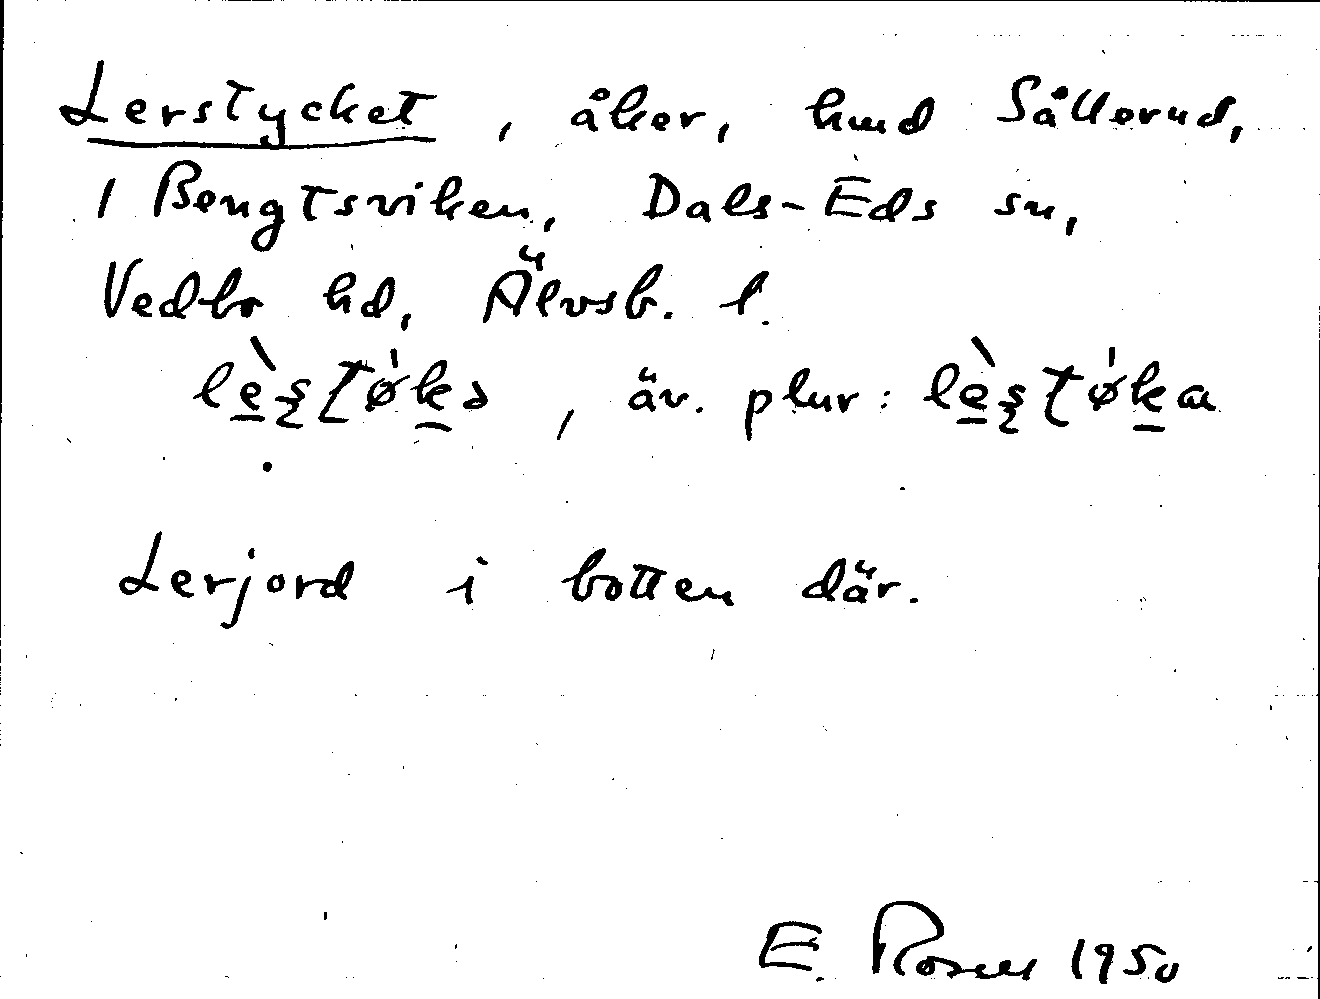 Lerstycket, åker, hmd Sållerud,
1 Bengtsviken, Dals-Eds sn,
Vedbo hd, Älvsb. l.
lè̱ʂʈøḵə, äv. plur: lè̱ʂʈøḵa
Lerjord i botten där.
E. Rosell 1950